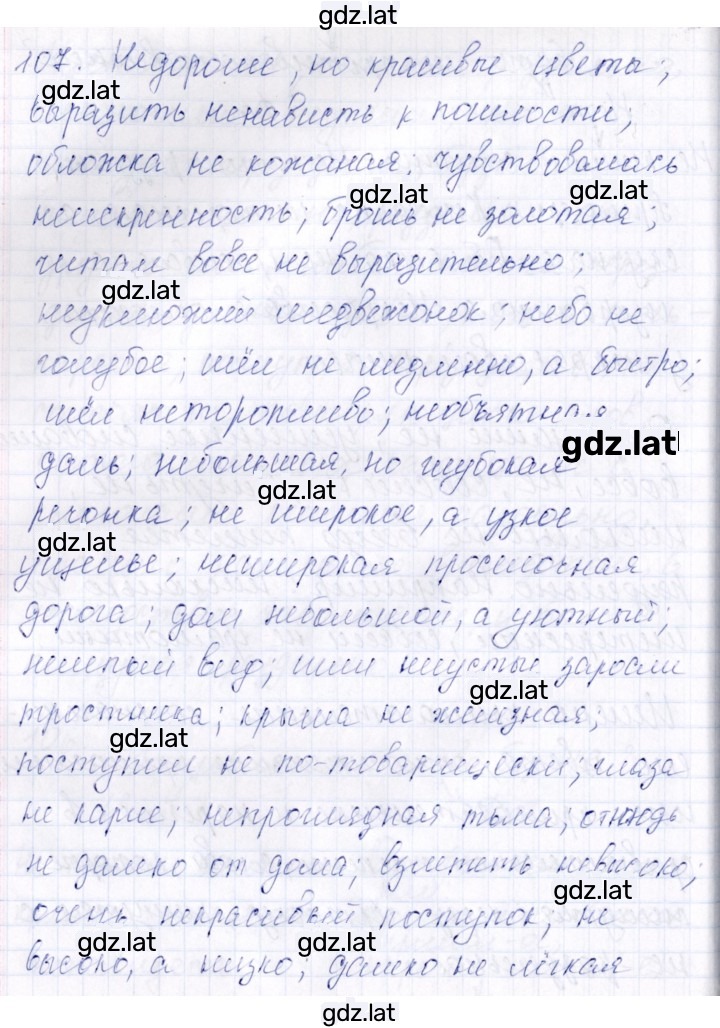 gdz.lat
107. Недорогие, но красивые цветы;
gdz.lat
выразить ненависть к пошлости;
обложка не кожаная. чувствовалась
gdz.lat gdz.lat
неискренность; брошь не золотая;
читал вовсе не выразительно;
gdz.lat
неуклюжий медвежонок; небо не
голубое; шёл не медленно, а быстро;
шёл неторопливо; необъятная
gdz.lat
даль; небольшая, но глубокая
gdz.lat
речонка; не широкое, а узкое
gdz.lat
ущелье; неширокая просёлочная
дорога; дом небольшой, а уютный;
нелепый вид; шли негустые заросли
gdz.lat
тростника; крыша не железная;
gdz.lat
поступил не по-товарищески; глаза
не карие; непроглядная тьма; отнюдь
не далеко от дома; взлететь невысоко;
gdz.lat
очень некрасивый поступок; не
gdz.lat gdz.lat
высоко, а низко; далеко не лёгкая
gdz.lat